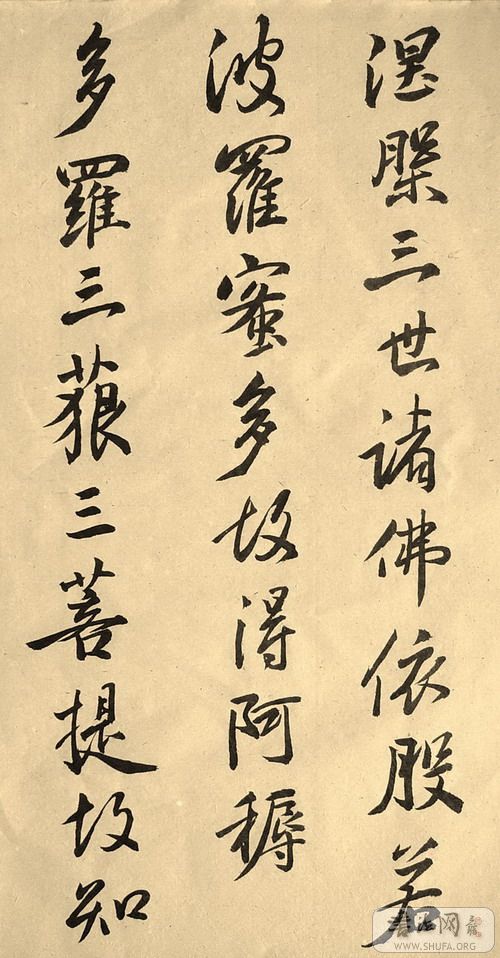 涅槃三世諸佛依般若
波羅蜜多故得阿耨
多羅三藐三菩提故知
WWW.SHUFA.ORG